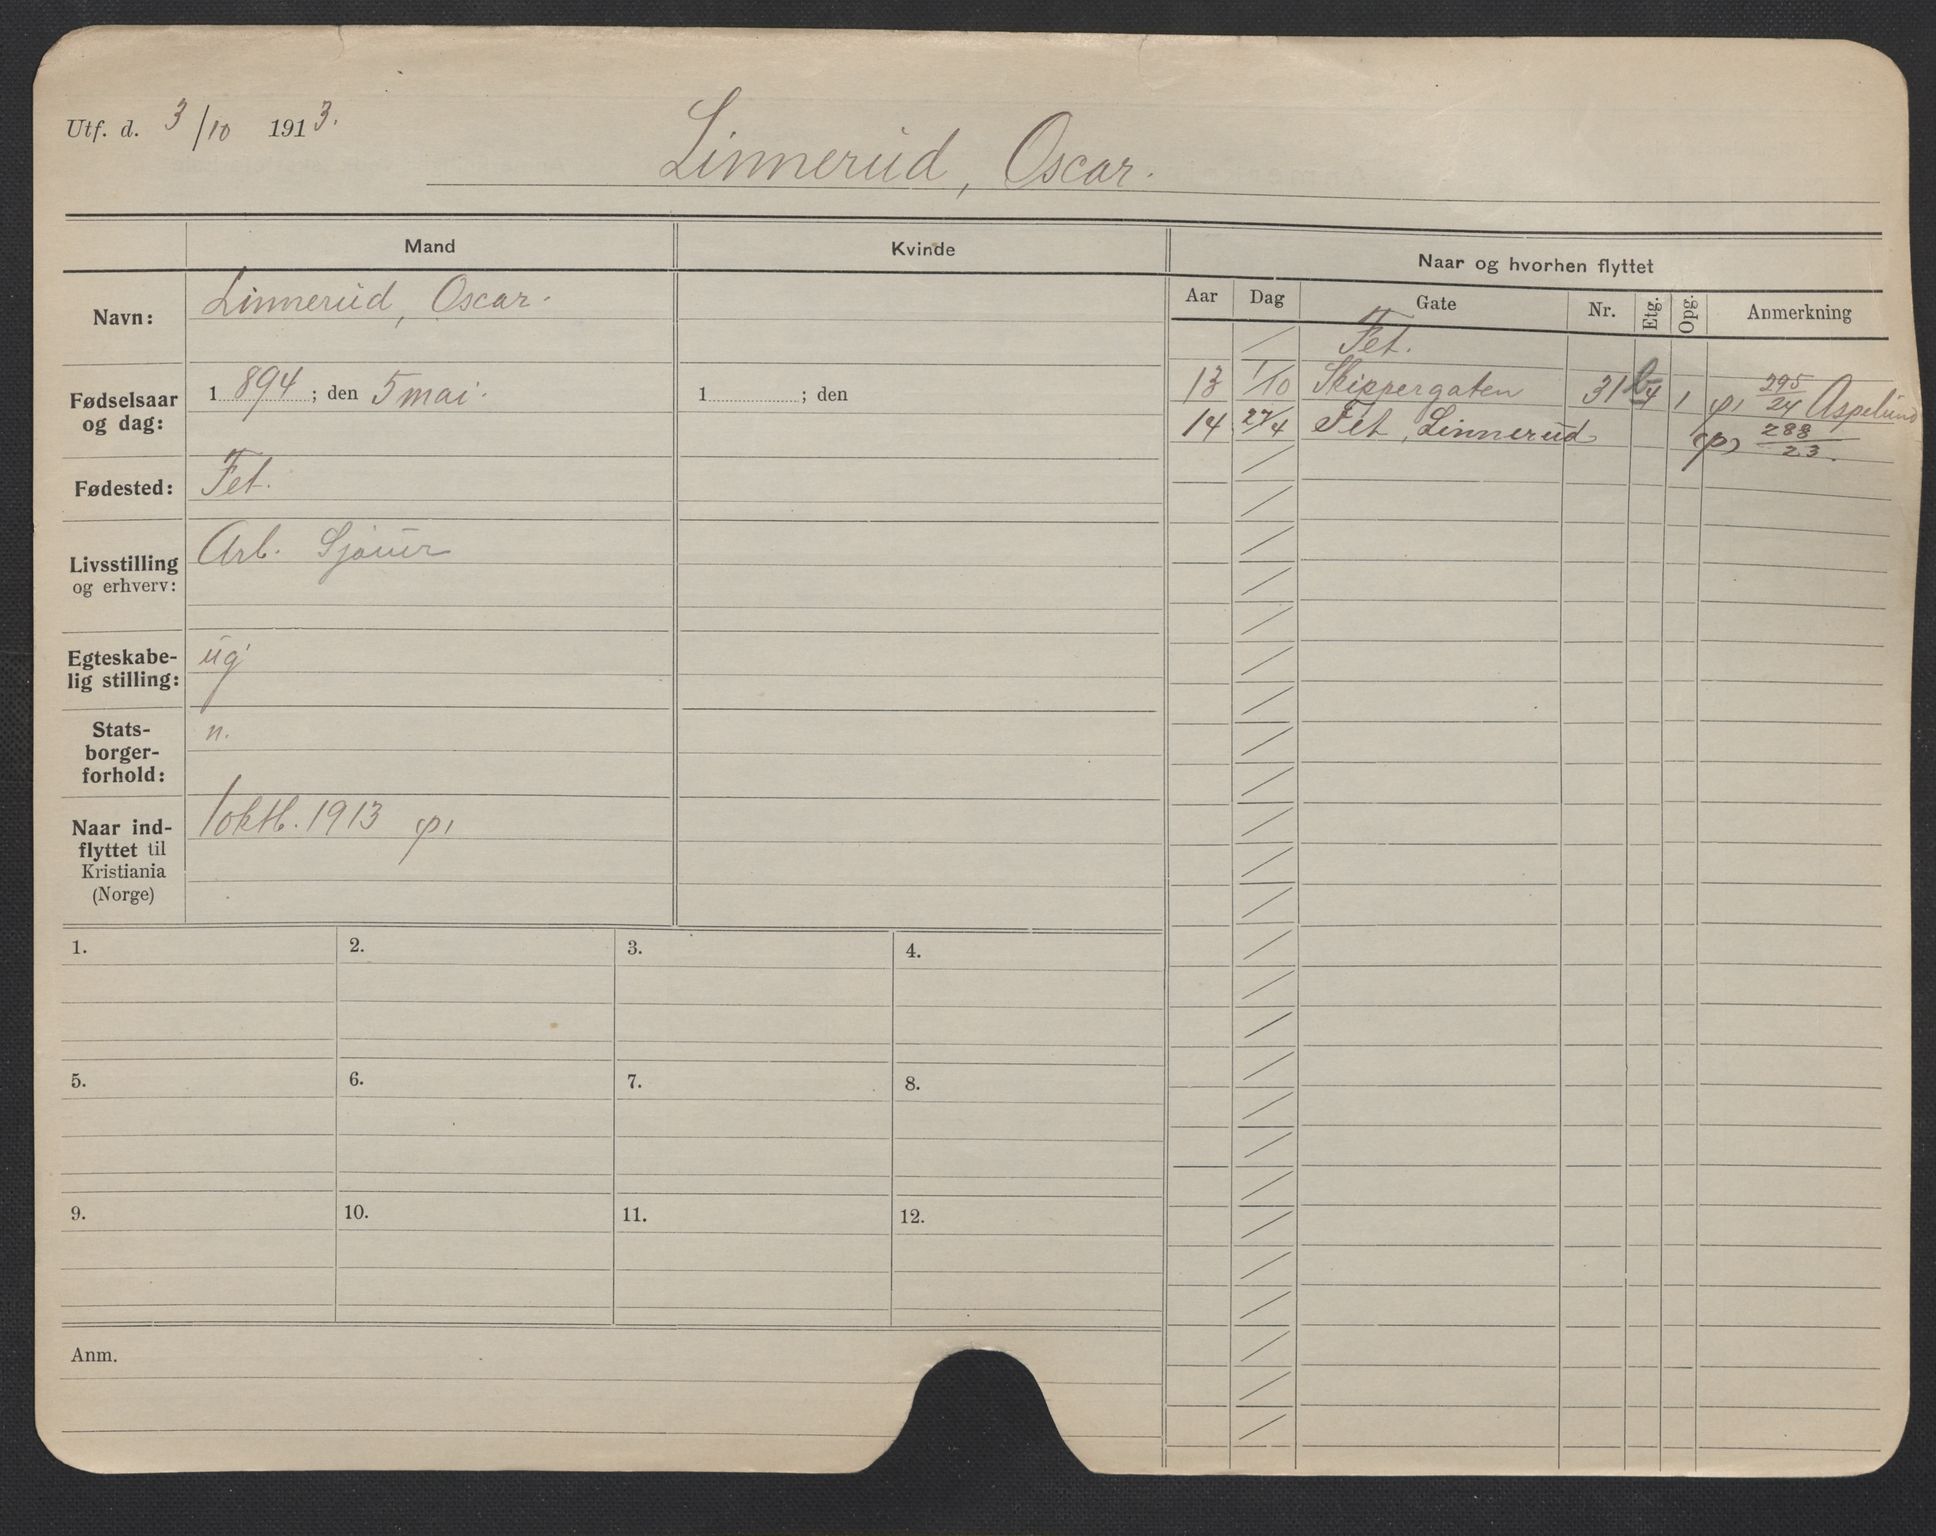 Utf. d. 3/10 1913.
Linnerud, Oscar.
Mand
Kvinde
Naar og hvorhen flyttet
Aar Dag Gate Nr. Etg. Opg. Anmerkning
Navn:
Linnerud, Oscar.
Fødselsaar og dag:
1894; den 5 mai.
1 ; den
Fødested:
Fet.
Livsstilling og erhverv:
Arb. Sjauer
Egteskabe-
lig stilling:
ug
Stats-
borger-
forhold:
n.
Naar ind-
flyttet til
Kristiania
(Norge)
1 oktb. 1913
Fet.
13 1/10 Skippergaten 31 b 4 1 295/24 Aspelund
14 27/4 Fet, Linnerud 288/23.
1. 2. 3. 4.
5. 6. 7. 8.
9. 10. 11. 12.
Anm.